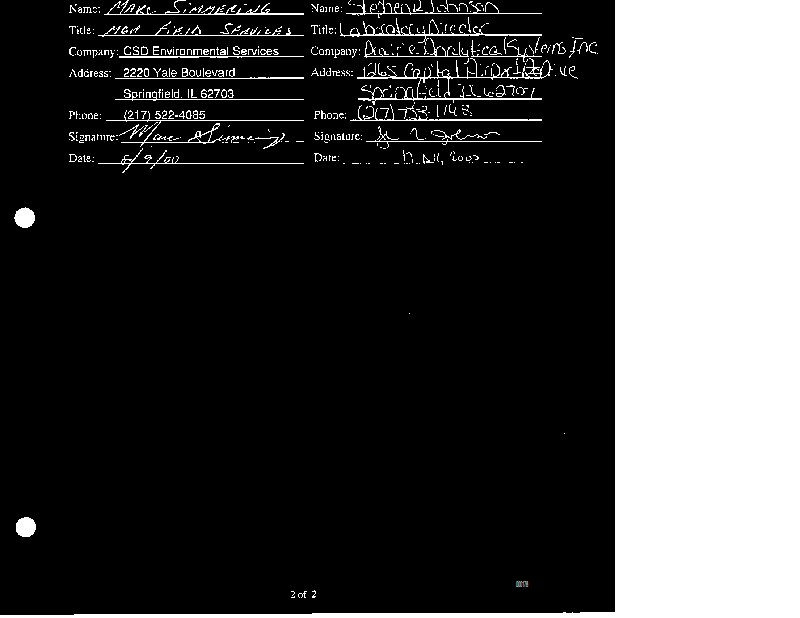 Name: MARC SIMMERING
Title: MGR FIELD SERVICES
Company: CSD Environmental Services
Address: 2220 Yale Boulevard
Springfield, IL 62703
Phone: (217) 522-4085
Signature: Marc Simmering
Date: 8/9/00
Name: Stephen R Johnson
Title: Laboratory Director
Company: Prairie Analytical Systems Inc
Address: 1265 Capital Airport Drive
Springfield IL 62707
Phone: (217) 753-1148
Signature:
Date: 2000
2 of 2